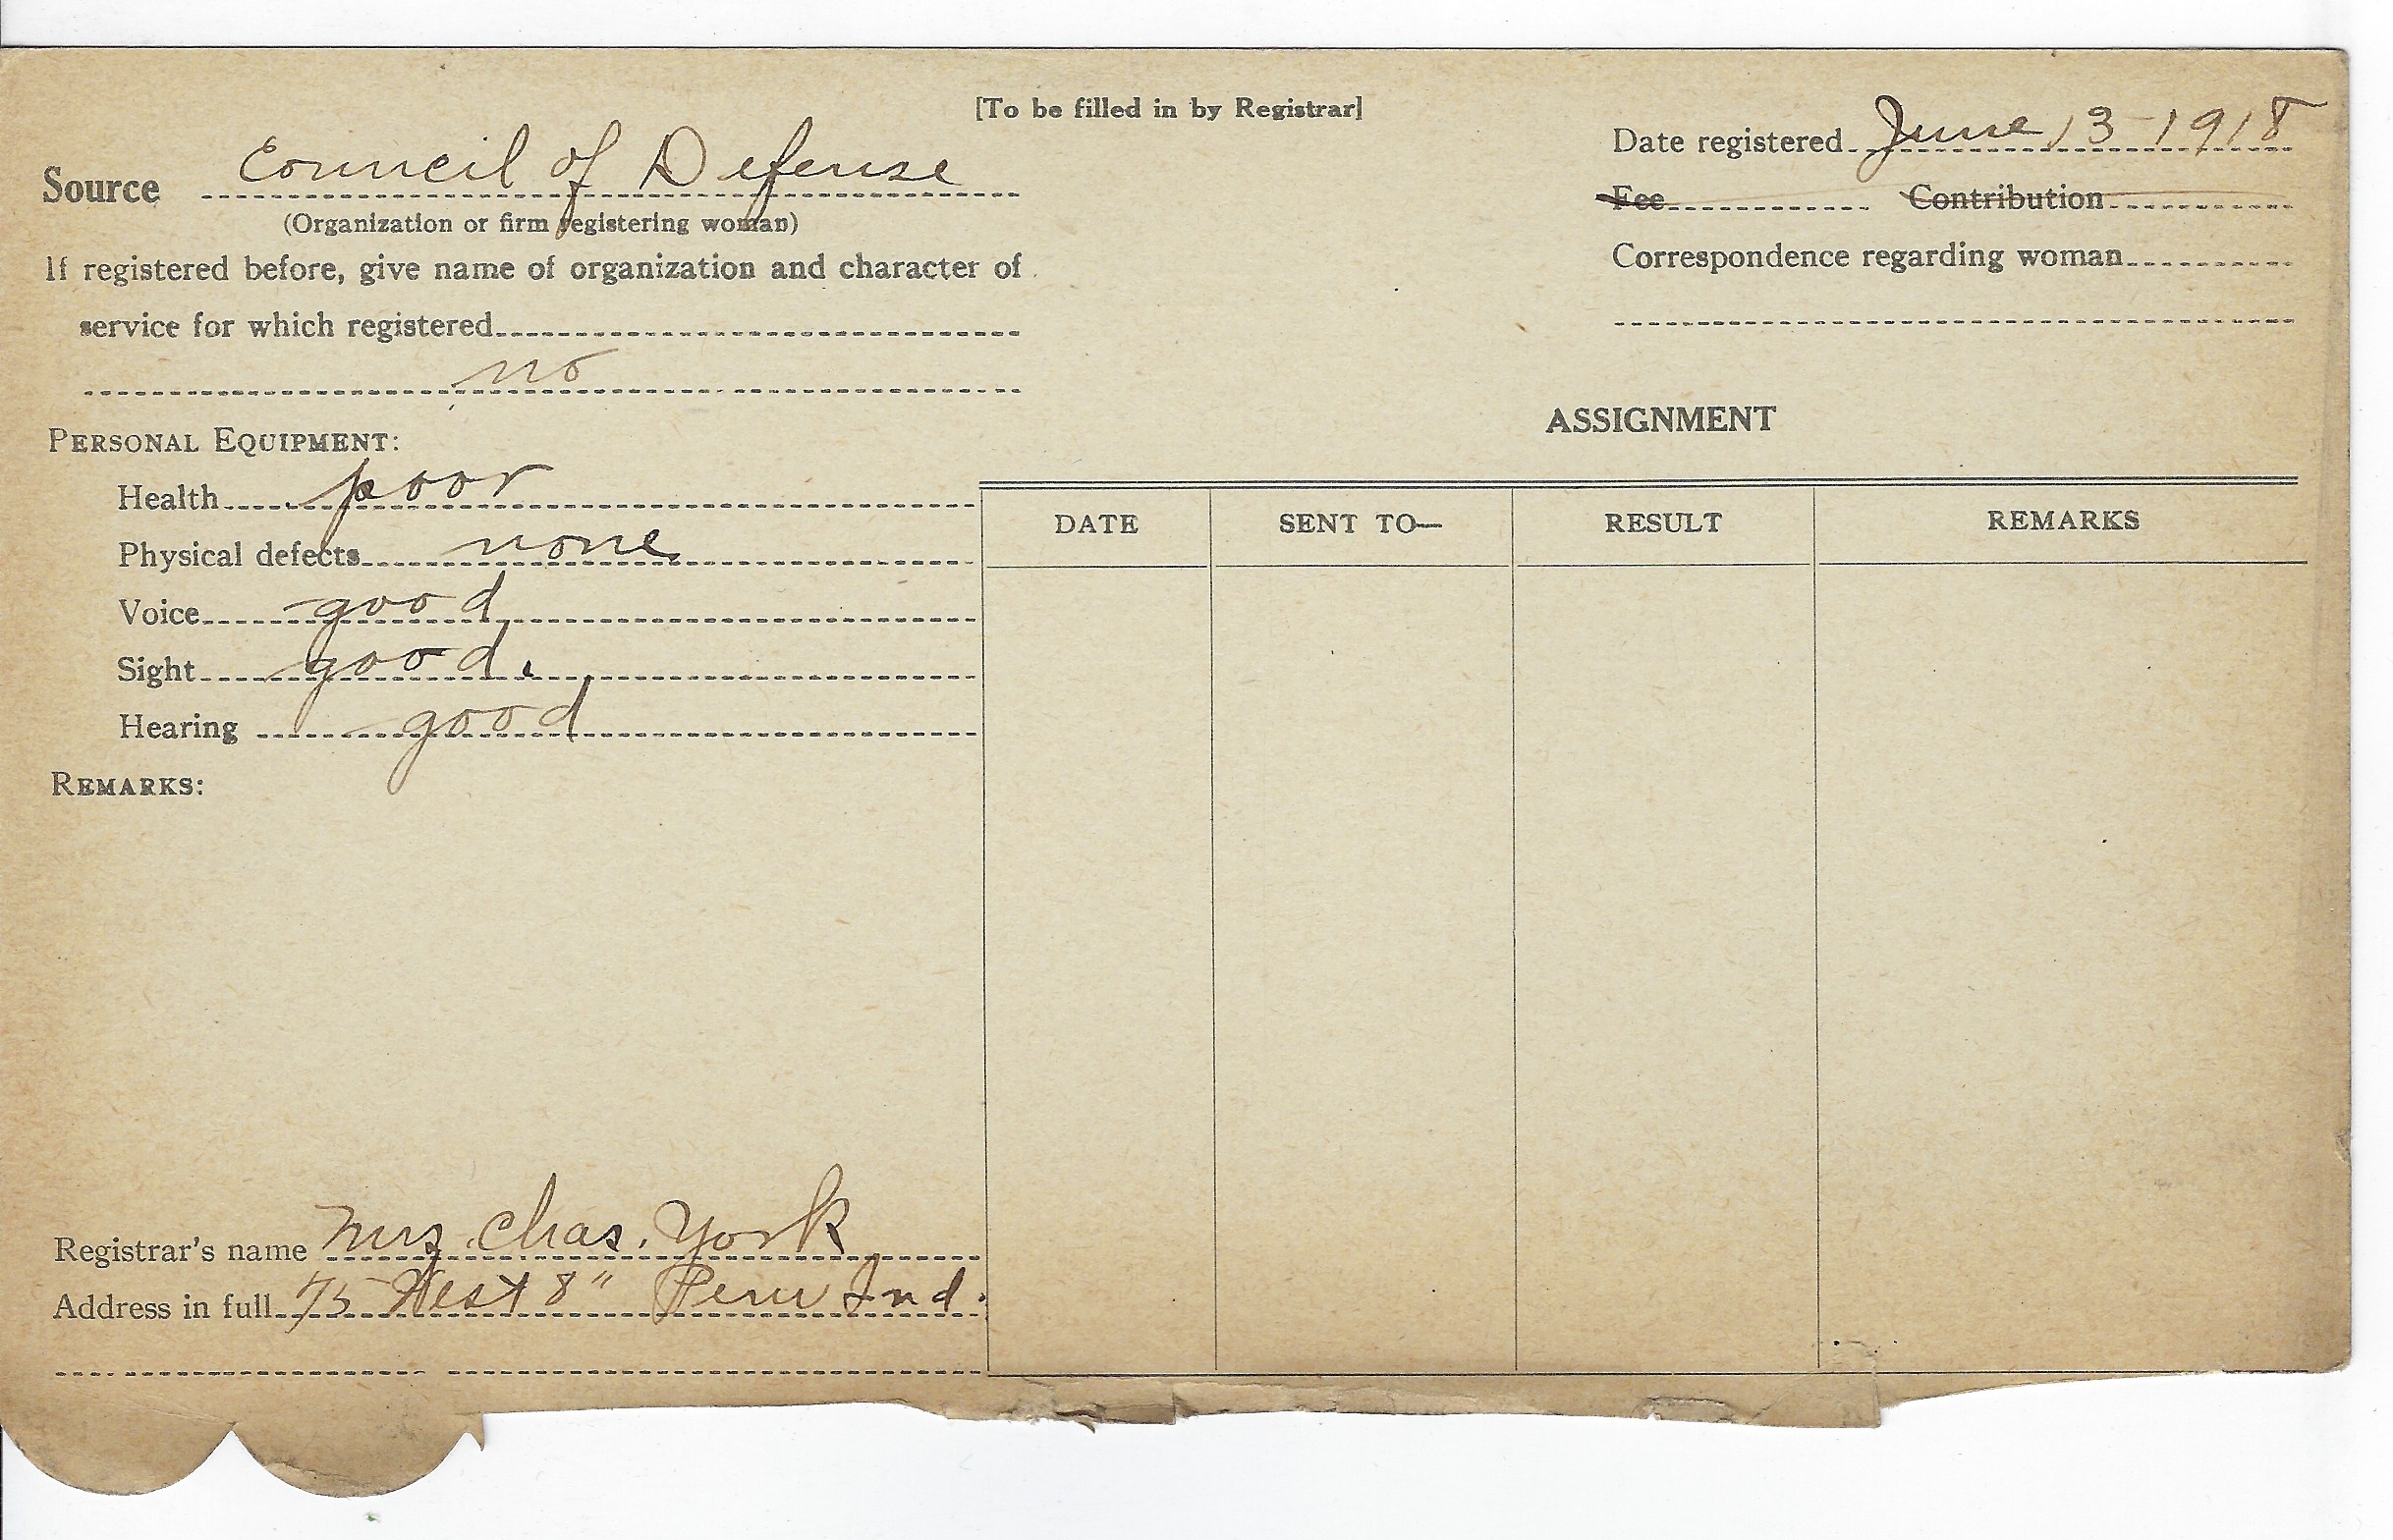 [To be filled in by Registrar]
Source Council of Defense
(Organization or firm registering woman)
If registered before, give name of organization and character of
service for which registered
no
Date registered June 13-1918
Fee Contribution
Correspondence regarding woman
PERSONAL EQUIPMENT:
Health poor
Physical defects none
Voice good
Sight good.
Hearing good
REMARKS:
Registrar's name Mrs. Chas. York
Address in full 75 West 8" Peru Ind.
ASSIGNMENT
DATE SENT TO— RESULT REMARKS